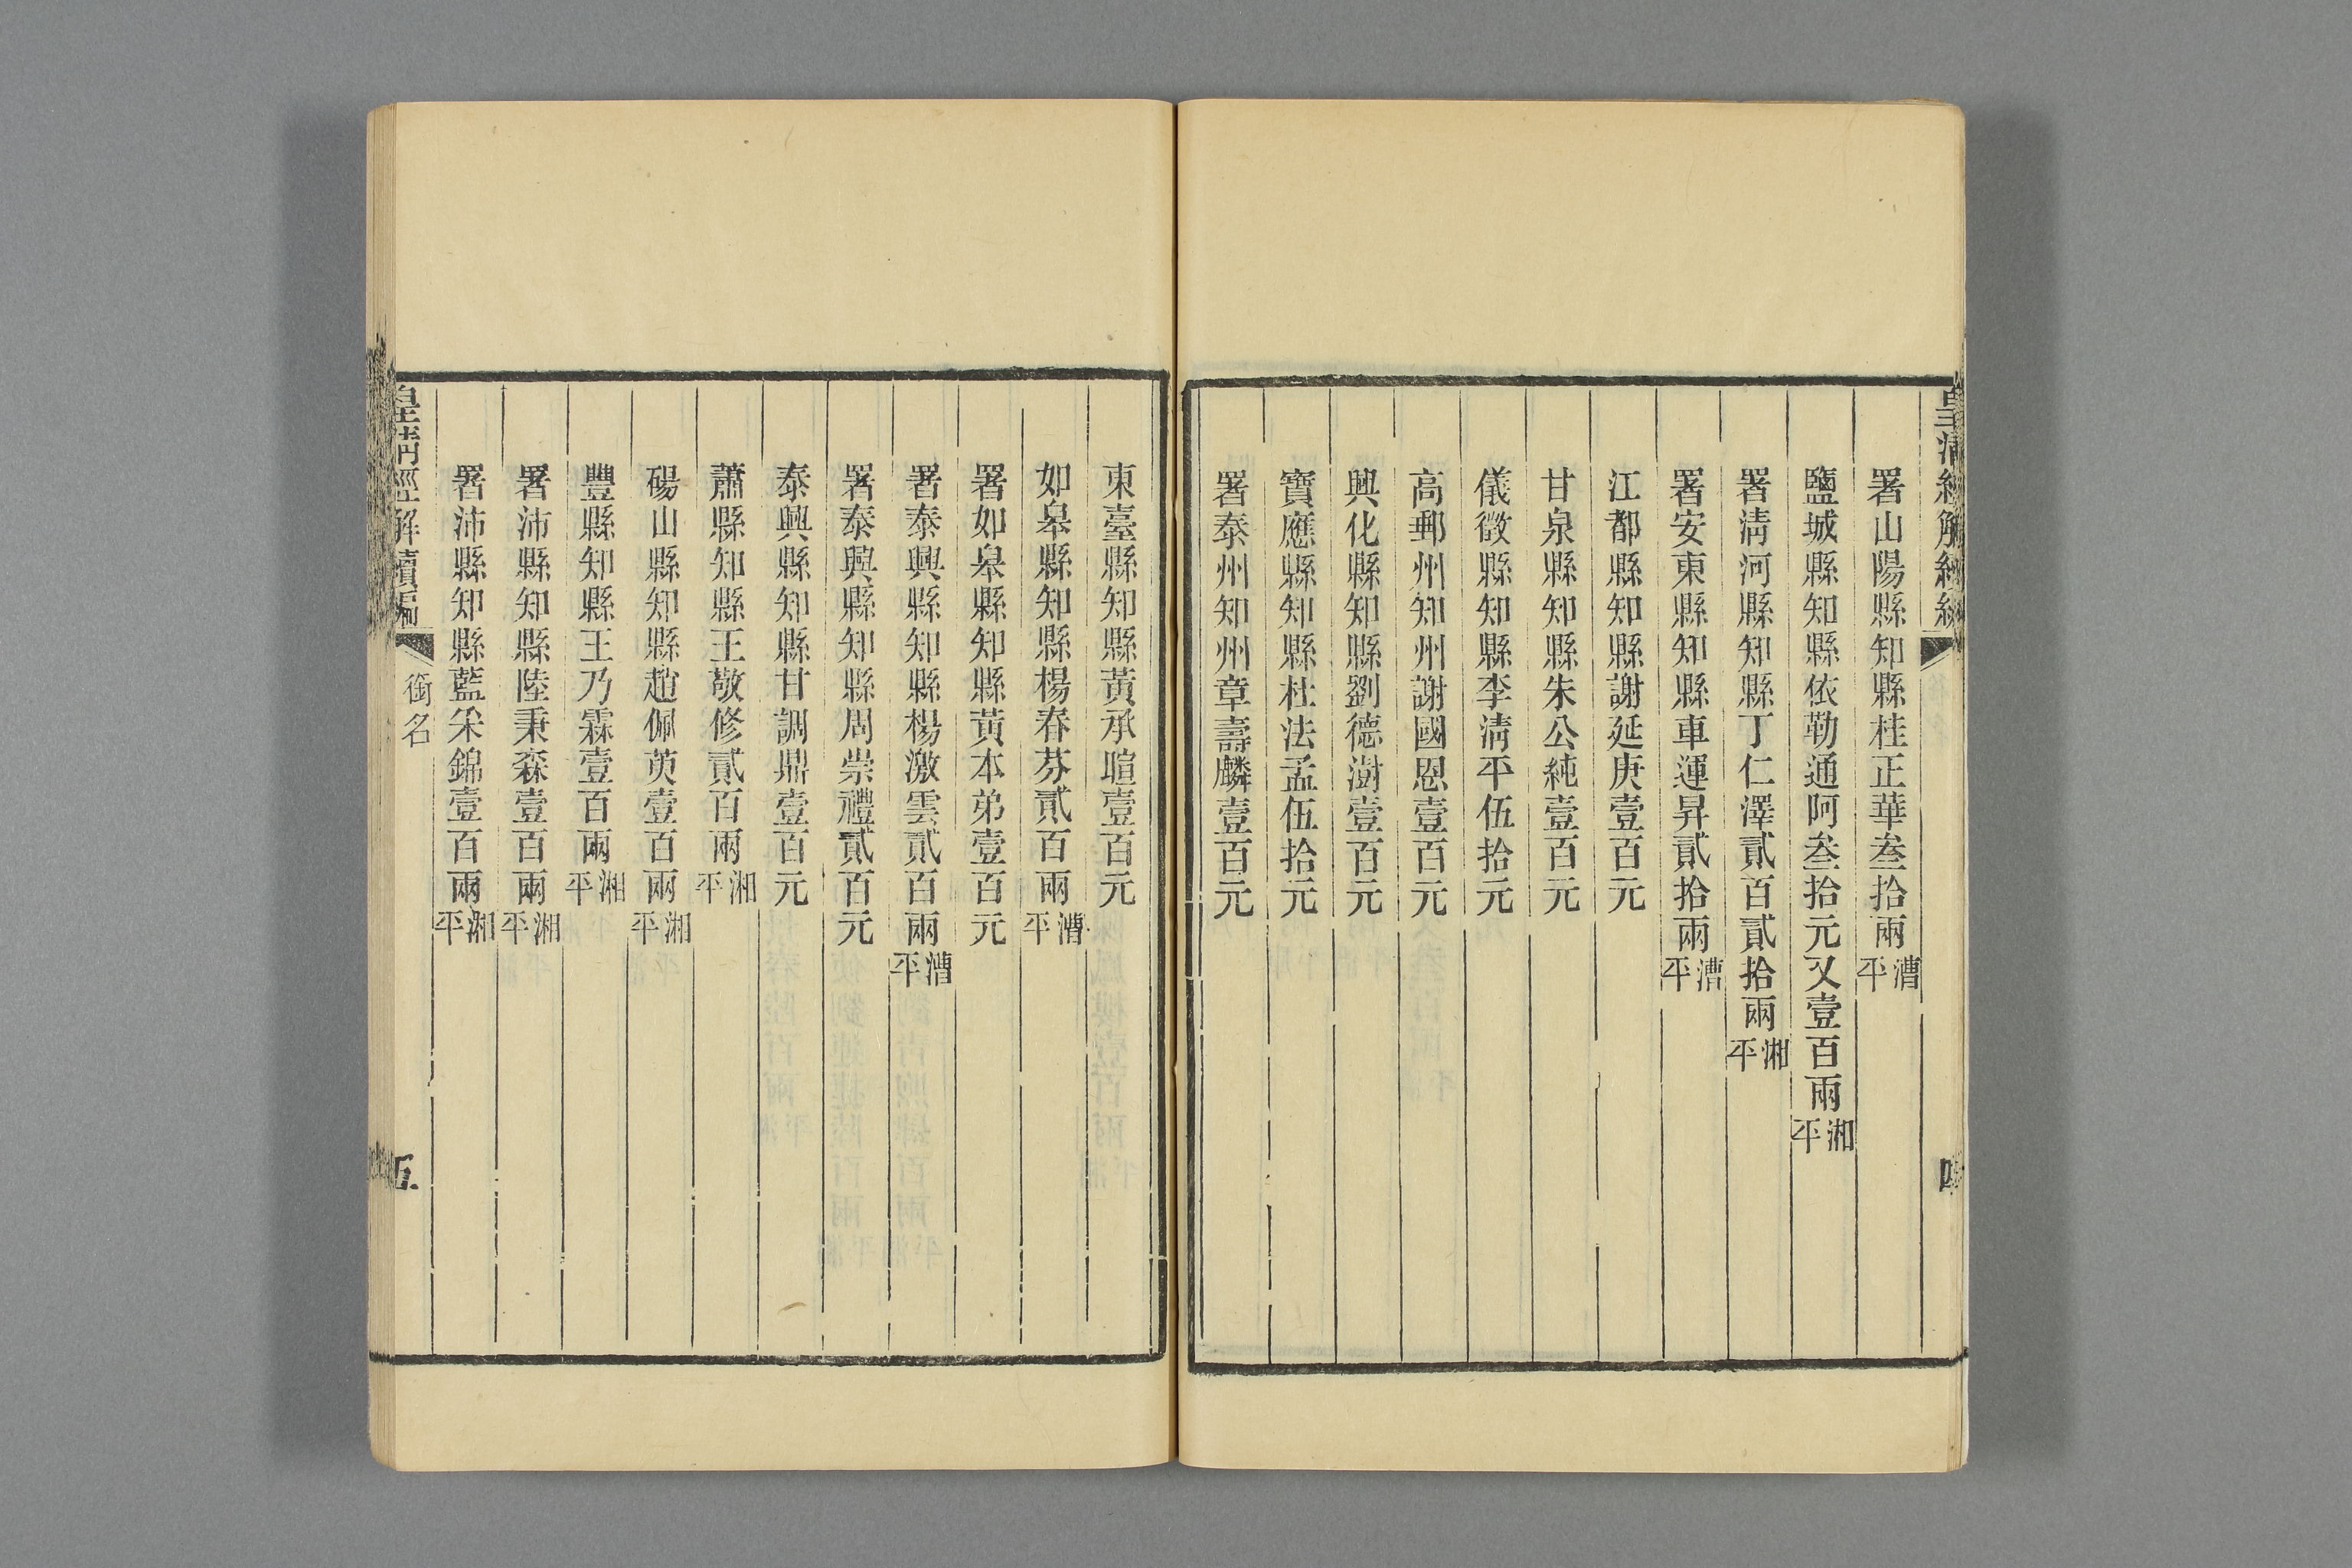 皇清經解續編
四
署山陽縣知縣桂正華叁拾兩漕平
鹽城縣知縣依勒通阿叁拾元又壹百兩湘平
署清河縣知縣丁仁澤貳百貳拾兩湘平
署安東縣知縣車運昇貳拾兩漕平
江都縣知縣謝延庚壹百元
甘泉縣知縣朱公純壹百元
儀徵縣知縣李清平伍拾元
高郵州知州謝國恩壹百元
興化縣知縣劉德澍壹百元
寶應縣知縣杜法孟伍拾元
署泰州知州章壽麟壹百元
東臺縣知縣黃承暄壹百元
如皋縣知縣楊春芬貳百兩漕平
署如皋縣知縣黃本弟壹百元
署泰興縣知縣楊激雲貳百兩漕平
署泰興縣知縣周崇禮貳百元
泰興縣知縣甘調鼎壹百元
蕭縣知縣王敬修貳百兩湘平
碭山縣知縣趙佩萸壹百兩湘平
豐縣知縣王乃霖壹百兩湘平
署沛縣知縣陸秉森壹百兩湘平
署沛縣知縣藍采錦壹百兩湘平
皇清經解續編
銜名
五